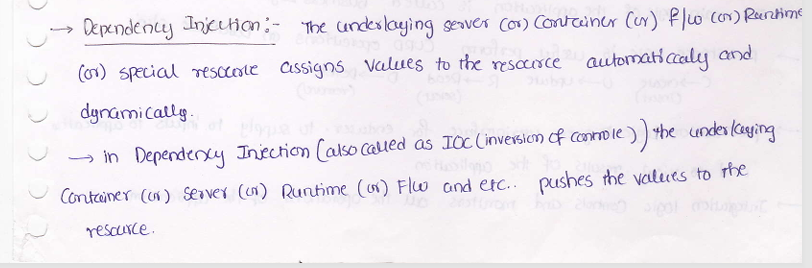 → Dependency Injection :- The underlaying server (or) Container (or) f/w (or) Runtime
(or) special resource assigns values to the resource automaticaly and
dynamically.
→ in Dependency Injection (also called as IOC (inversion of controle)) the underlaying
Container (or) server (or) Runtime (or) F/w and etc.. pushes the values to the
resource.